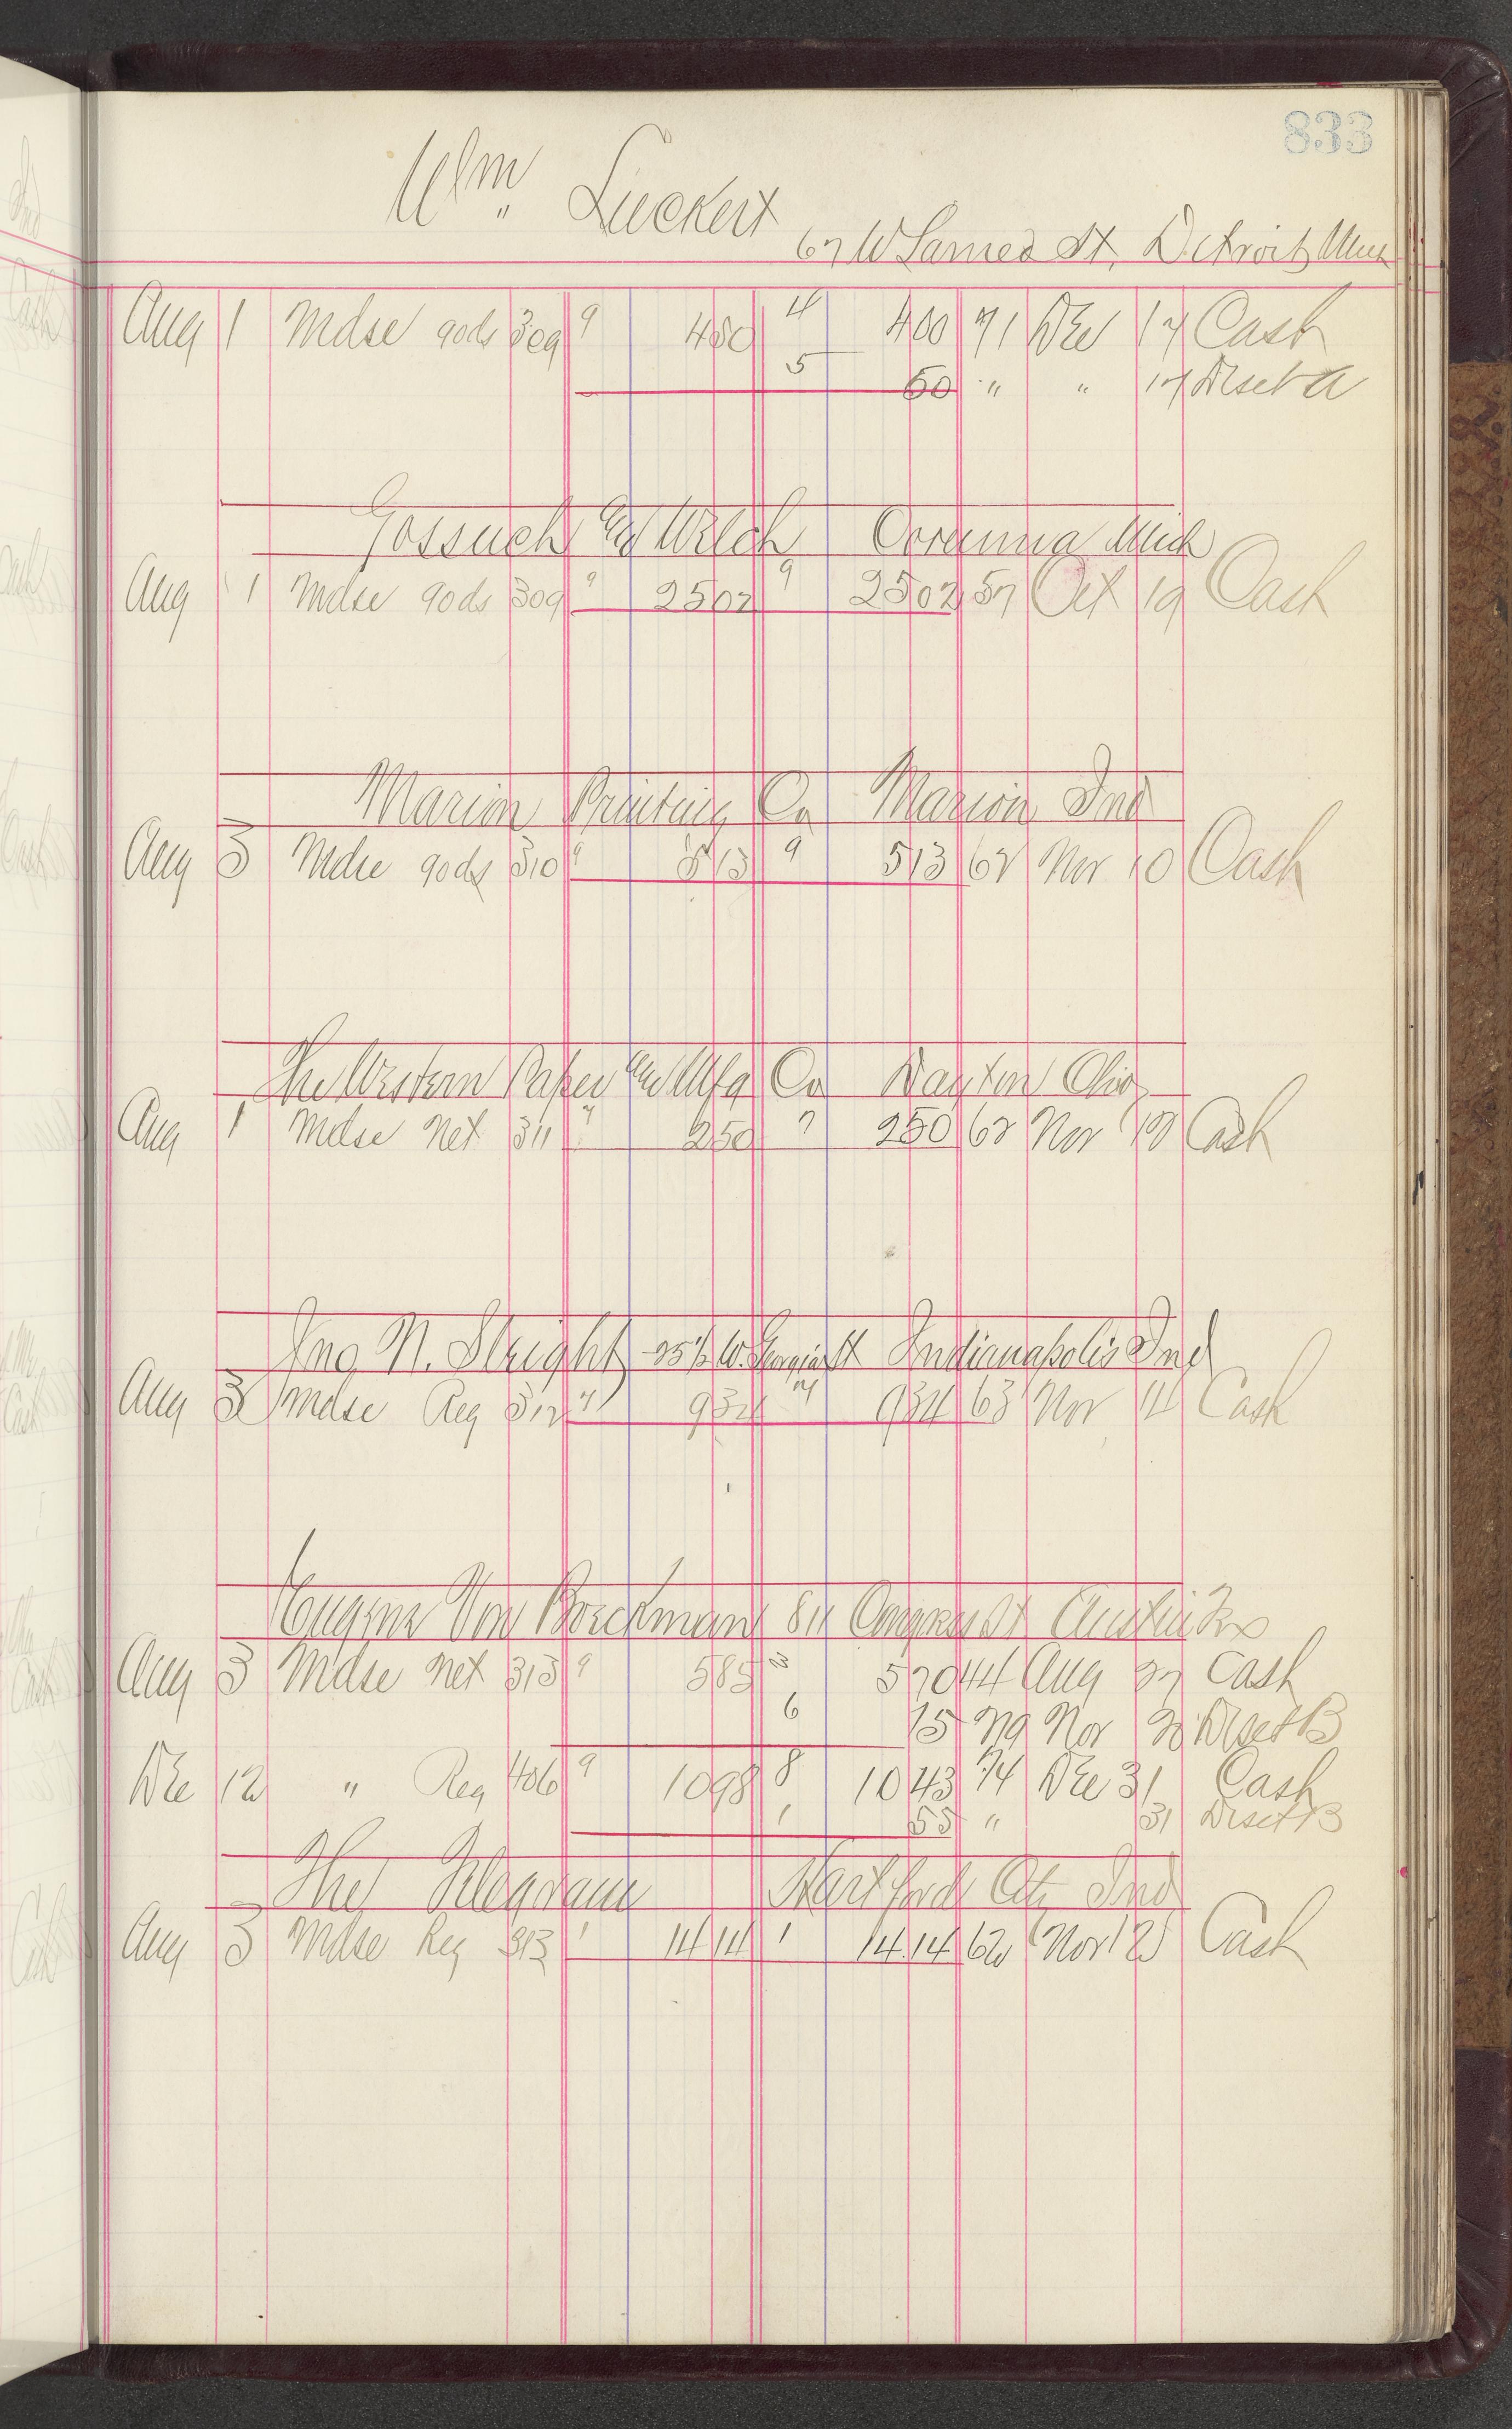 833
Wm Lueckert 67 W Larned St, Detroit Mich
Aug 1 Mdse 90ds 309 9 4 50 4 4 00 71 Dec 17 Cash
5 50 " " 17 Disct A
Gossuch and Welch Corunna Mich
Aug 1 Mdse 90ds 309 9 25 02 9 25 02 57 Oct 19 Cash
Marion Printing Co Marion Ind
Aug 3 Mdse 90ds 310 9 5 13 9 5 13 62 Nov 10 Cash
The Western Paper and Mfg Co Dayton Ohio
Aug 1 Mdse Net 311 7 2 50 7 2 50 62 Nov Cash
Jno N. Sleight 25½ W. Georgia St Indianapolis Ind
Aug 3 Mdse Reg 312 7 9 34 7 9 34 63 Nov 14 Cash
Eugene Von Boeckman 811 Congress St Austin Tex
Aug 3 Mdse Net 313 9 5 85 3 5 70 44 Aug 27 Cash
6 15 Nov Disct B
Dec 12 " Reg 406 9 10 98 8 10 43 74 Dec 31 Cash
1 55 " 31 Disct B
The Telegram Hartford City Ind
Aug 3 Mdse Reg 313 1 14 14 1 14 14 62 Nov 12 Cash